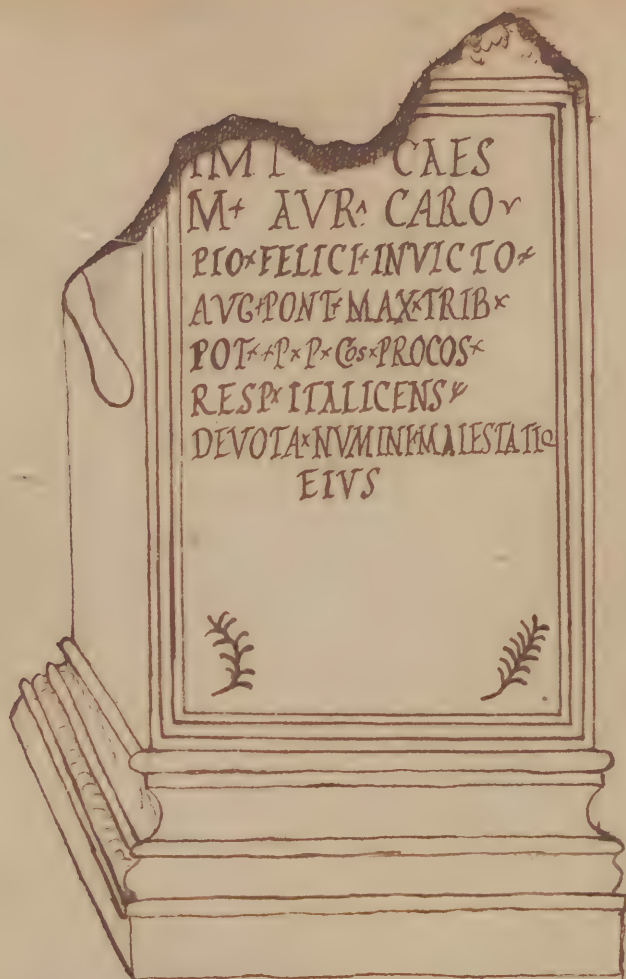 IMP CAES
M+ AVR· CARO
PIO×FELICI+INVICTO×
AVG+PONT+MAX×TRIB×
POT×+P×P×Cos×PROCOS×
RESP×ITALICENS
DEVOTA×NVMINI+MAIESTATIQ
EIVS